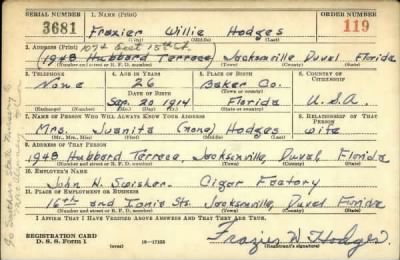 SERIAL NUMBER 1. NAME (Print) ORDER NUMBER
3681 Frazier Willie Hodges 119
(First) (Middle) (Last)
2. ADDRESS (Print) 1074 East 15th St.
(1948 Hubbard Terrace) Jacksonville Duval Florida
(Number and street or R. F. D. number) (Town) (County) (State)
3. TELEPHONE 4. AGE IN YEARS 5. PLACE OF BIRTH 6. COUNTRY OF CITIZENSHIP
None 26 Baker Co.
DATE OF BIRTH (Town or county)
Sep. 20 1914 Florida U.S.A.
(Exchange) (Number) (Mo.) (Day) (Yr.) (State or country)
7. NAME OF PERSON WHO WILL ALWAYS KNOW YOUR ADDRESS 8. RELATIONSHIP OF THAT PERSON
Mrs. Juanita (none) Hodges wife
(Mr., Mrs., Miss) (First) (Middle) (Last)
9. ADDRESS OF THAT PERSON
1948 Hubbard Terrace, Jacksonville, Duval, Florida
(Number and street or R. F. D. number) (Town) (County) (State)
10. EMPLOYER'S NAME
John H. Swisher Cigar Factory
11. PLACE OF EMPLOYMENT OR BUSINESS
16th and Ionia Sts. Jacksonville, Duval Florida
(Number and street or R. F. D. number) (Town) (County) (State)
I AFFIRM THAT I HAVE VERIFIED ABOVE ANSWERS AND THAT THEY ARE TRUE.
REGISTRATION CARD
D. S. S. Form 1 (over) 16—17105 Frazier W. Hodges
(Registrant's signature)